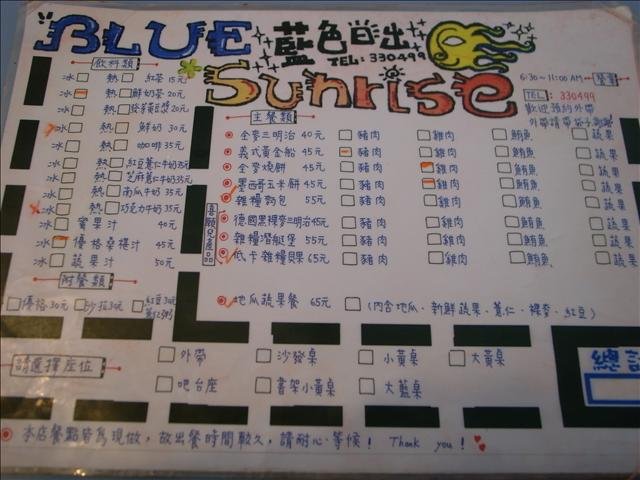 BLUE 藍色日出
Sunrise
TEL: 330499
6:30~11:00 AM 營業
TEL: 330499
歡迎預約外帶
飲料類
冰□ 熱□ 紅茶 15元
冰□ 熱□ 鮮奶茶 20元
冰□ 熱□ 20元
冰□ 熱□ 鮮奶 30元
冰□ 熱□ 咖啡 35元
冰□ 熱□ 紅豆薏仁牛奶 35元
冰□ 熱□ 芝麻薏仁牛奶 35元
冰□ 熱□ 南瓜牛奶 35元
冰□ 熱□ 巧克力牛奶 35元
冰□ 蜜果汁 40元
冰□ 優格桑椹汁 45元
冰□ 蔬果汁 50元
附餐類
□優格30元 □沙拉30元 □紅豆30元
薏仁粥
主餐類
全麥三明治 40元 □豬肉 □雞肉 □鮪魚 □蔬果
義式黃金船 45元 □豬肉 □雞肉 □鮪魚 □蔬果
全麥燒餅 45元 □豬肉 □雞肉 □鮪魚 □蔬果
墨西哥玉米餅 45元 □豬肉 □雞肉 □鮪魚 □蔬果
雜糧麭包 55元 □豬肉 □雞肉 □鮪魚 □蔬果
喜願兒產品
德國黑裸麥三明治 45元 □豬肉 □雞肉 □鮪魚 □蔬果
雜糧潛艇堡 55元 □豬肉 □雞肉 □鮪魚 □蔬果
低卡雜糧貝果 65元 □豬肉 □雞肉 □鮪魚 □蔬果
地瓜蔬果餐 65元 □ (內含地瓜、新鮮蔬果、薏仁、裸麥、紅豆)
請選擇座位
□外帶 □沙發桌 □小黃桌 □大黃桌
□吧台座 □書架小黃桌 □大藍桌
總
本店餐點皆為現做，故出餐時間較久，請耐心等候！ Thank you！